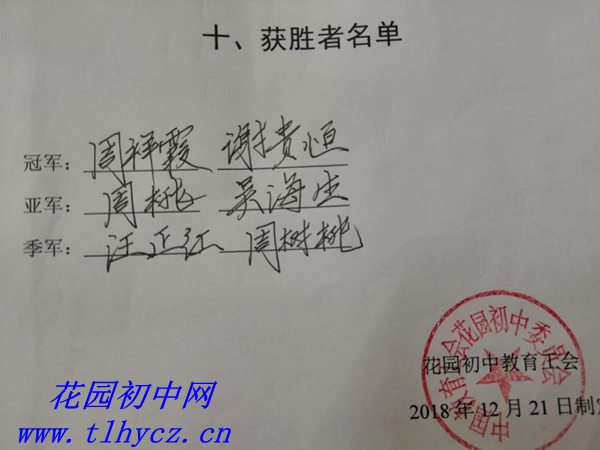 十、获胜者名单
冠军：周祥霞 谢贵恒
亚军：周桃 吴海生
季军：汪正江 周树桃
花园初中教育工会
2018年12月21日制定
中国教育工会花园初中委员会
花园初中网
www.tlhycz.cn